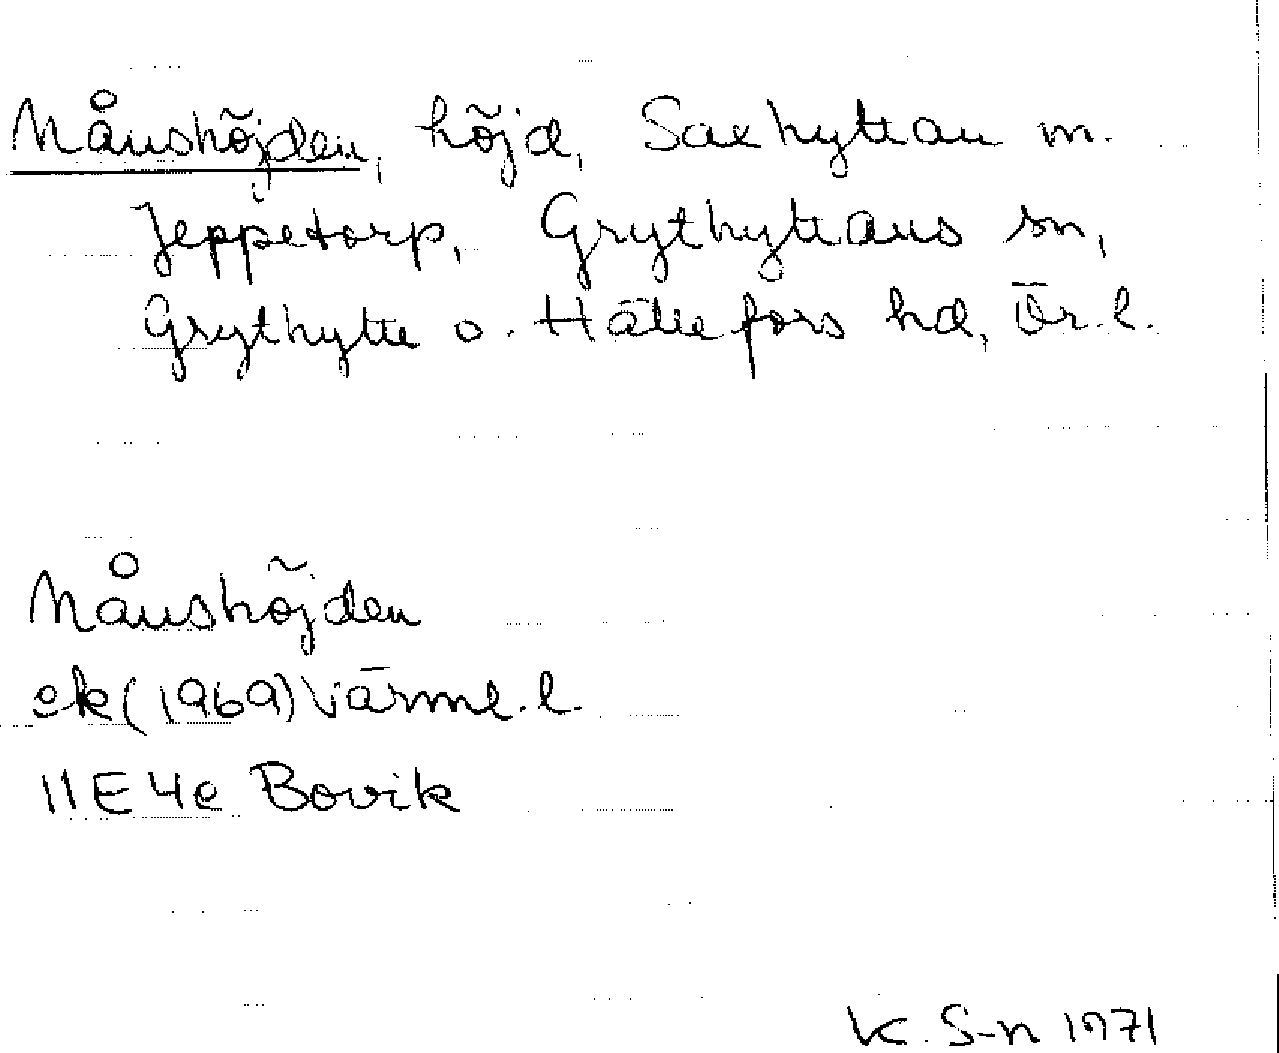 Månshöjden, höjd, Saxhyttan m.
Jeppetorp, Grythyttans sn,
Grythytte o. Hällefors hd, Ör. l.
Månshöjden
ek (1969) Värml. l.
11E4e Bovik
K. S-n 1971